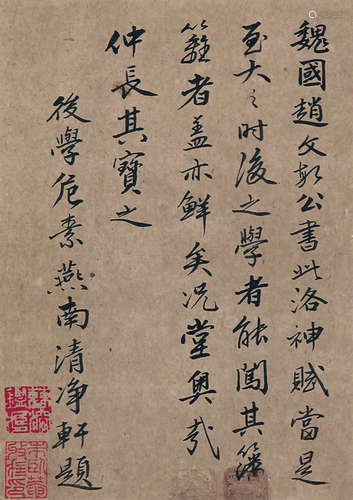 魏國趙文敏公書此洛神賦當是
至大之時後之學者能闖其籓
籬者盖亦鮮矣况堂奥哉
仲長其寶之
後學危素燕南清净軒題